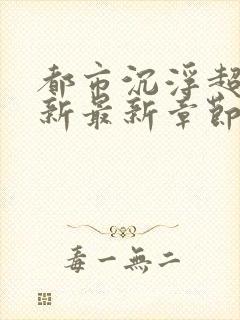 都市沉浮超
新最新章節
毒一無二